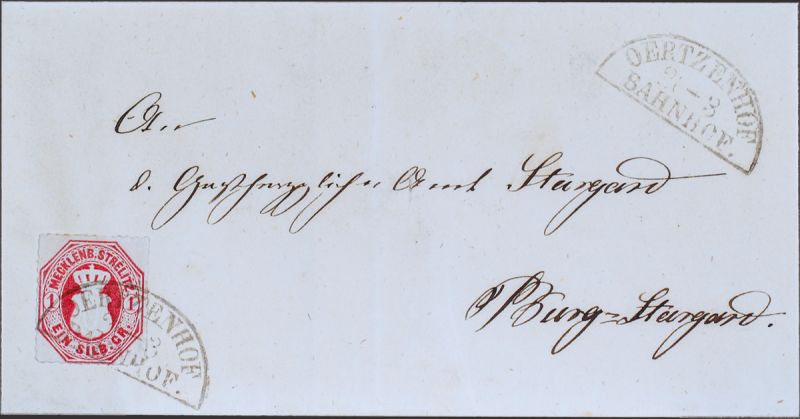 OERTZENHOF
2 – 3
BAHNHOF.
An
d. Großherzogliche Amt Stargard
Burg=Stargard.
MECKLENB. STRELITZ
1 1
EIN SILB. GR.
OERTZENHOF
3
BAHNHOF.